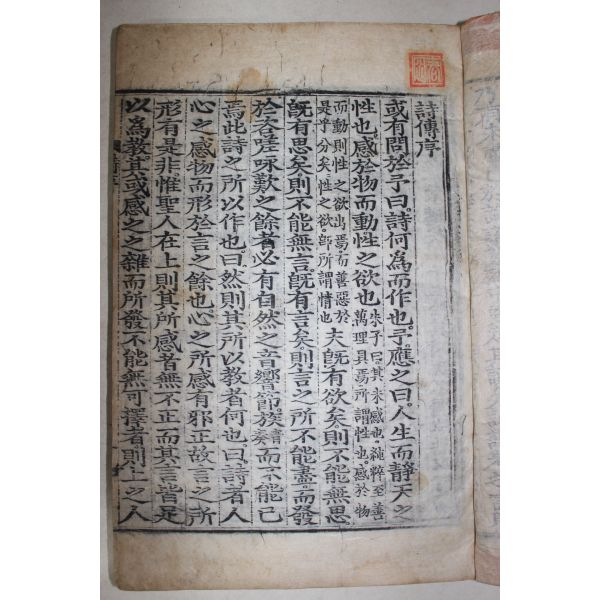 詩傳序
或有問於予曰。詩何爲而作也。予應之曰。人生而靜天之
性也。感於物而動性之欲也朱子曰其未感也。純粹至善
萬理具焉所謂性也。感於物
而動則性之欲出焉而善惡於
是乎分矣性之欲。卽所謂情也夫旣有欲矣。則不能無思
旣有思矣。則不能無言旣有言矣。則言之所不能盡。而發
於咨嗟咏歎之餘者必有自然之音響節族音奏而不能已
焉此詩之所以作也。曰然則其所以教者何也。曰。詩者人
心之感物而形於言之餘也。心之所感有邪正故言之所
形有是非。惟聖人在上則其所感者無不正而其言皆足
以爲教。其或感之之雜而所發不能無可擇者則上之人